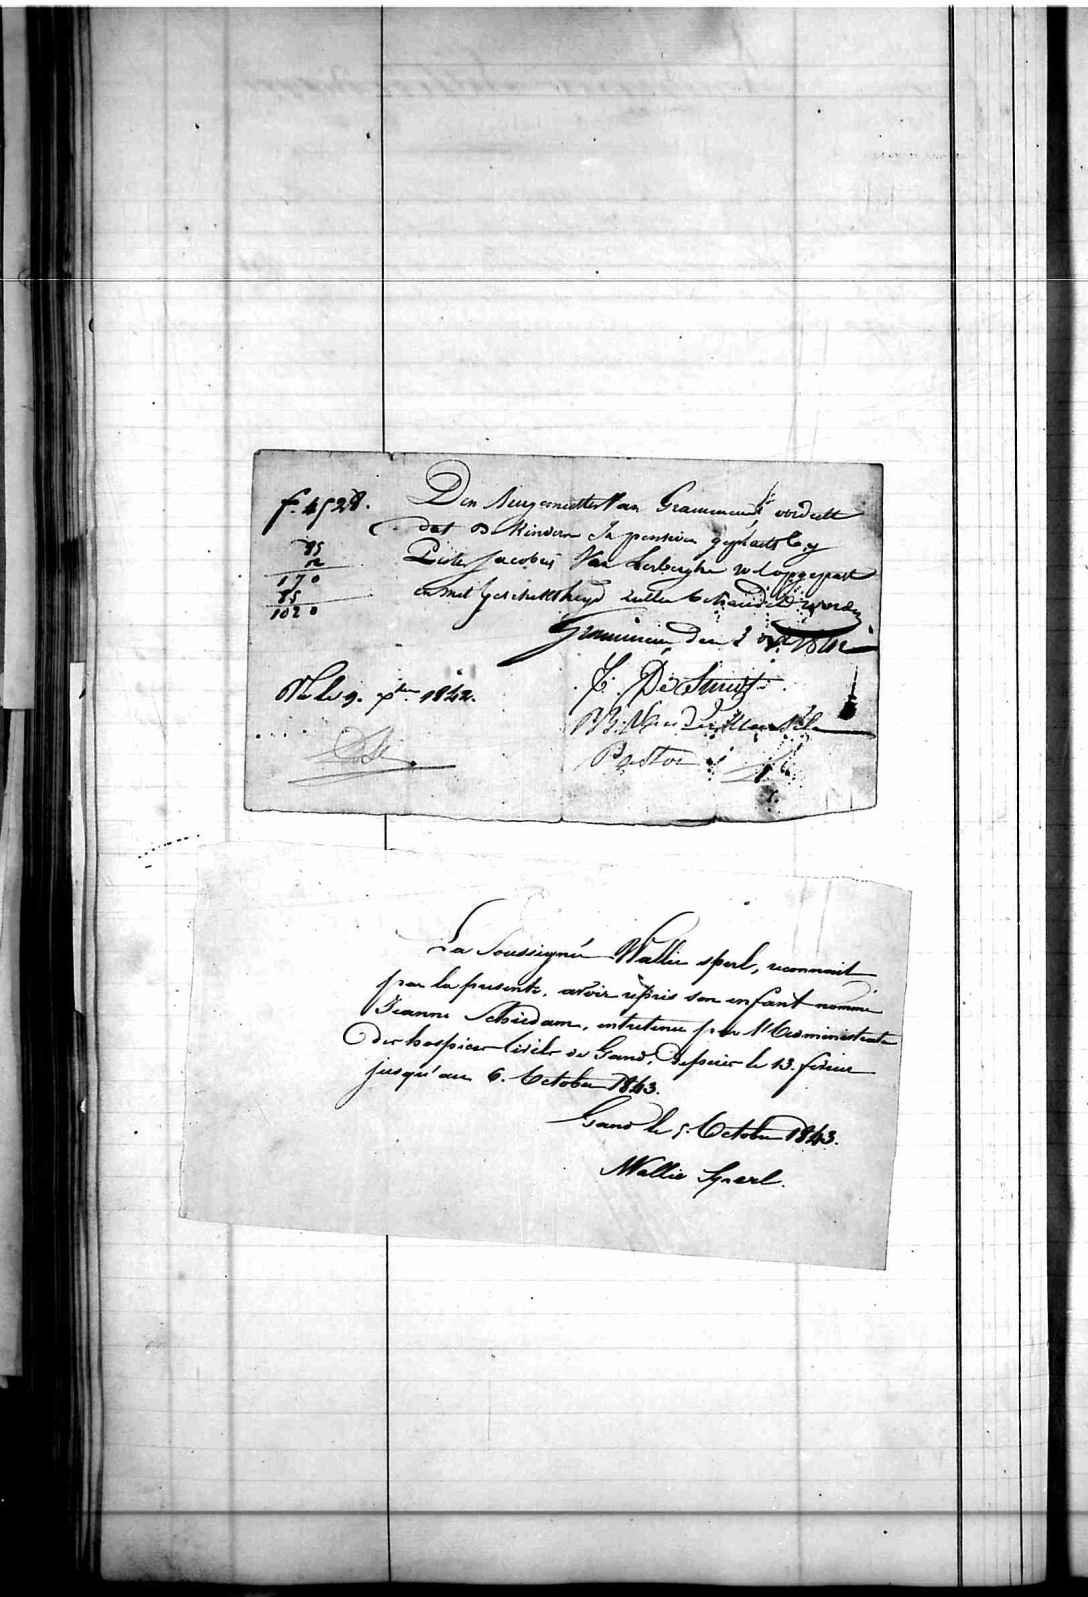 f. 4528.
85
12
170
85
1020
Den Burgemeester Van Grammene oordeelt
dat de Kinders in pensioen geplaetst by
Pieter Jacobus Van Lerberghe wel opgepast
en met Geschiktheyd zullen behandeld worden
Grammene den 2 1842
De Smet
Pastor
Vu le 9. 7bre 1842.
La Soussignée Wallie Sperl, reconnait
par la presente, avoir repris son enfant nommé
Jeanne Schiedam, entretenue par l'Administration
des hospices Civils de Gand, depuis le 13. fevrier
jusqu'au 6. Octobre 1843.
Gand le 5. Octobre 1843.
Wallie Sperl.